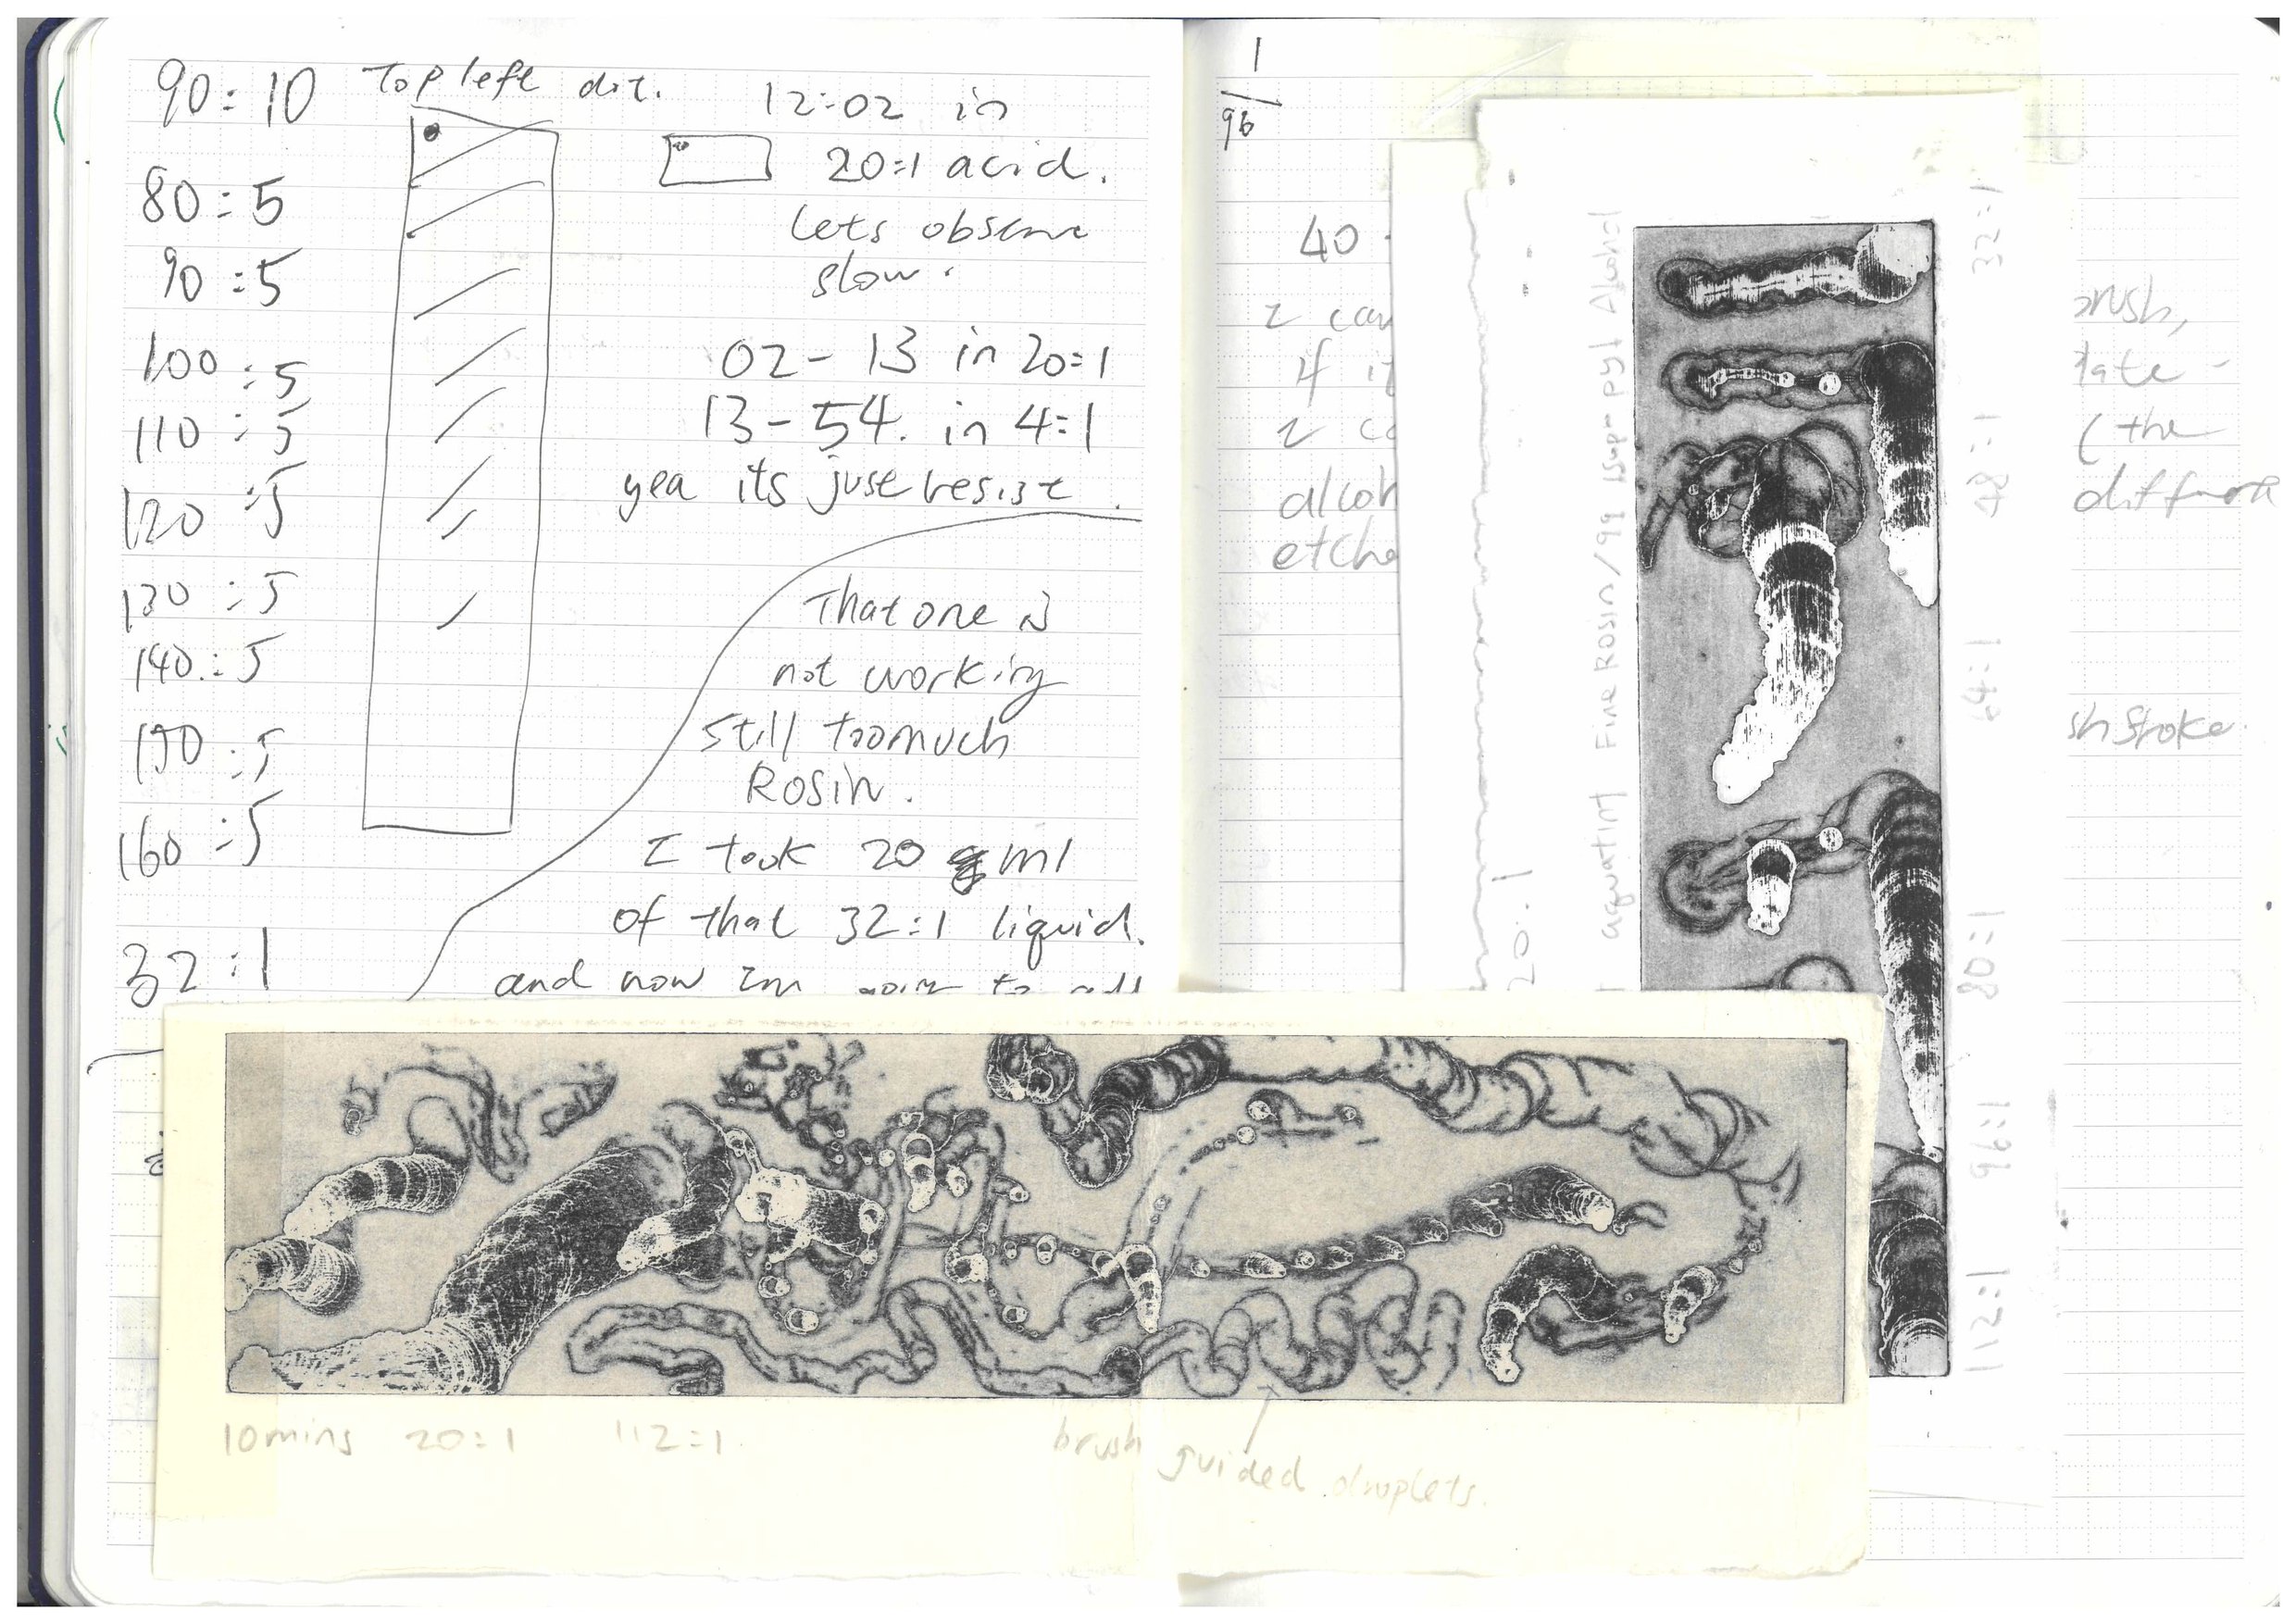 90:10
80:5
90:5
100:5
110:5
120:5
130:5
140:5
150:5
160:5
32:1
Top left dot.
12:02 in
20:1 acid.
Lets observe
slow.
02-13 in 20:1
13-54. in 4:1
yea its just resist.
That one is
not working
still too much
Rosin.
I took 20 ml
of that 32:1 liquid.
and now Im going to add
1
96
40
if it
alcoh
etche
brush,
late
(the
different
sh stroke.
20:1
aquatint Fine Rosin/99 Isopropyl Alcohol
32:1
48:1
64:1
80:1
96:1
112:1
10mins 20:1 112:1.
brush guided droplets.